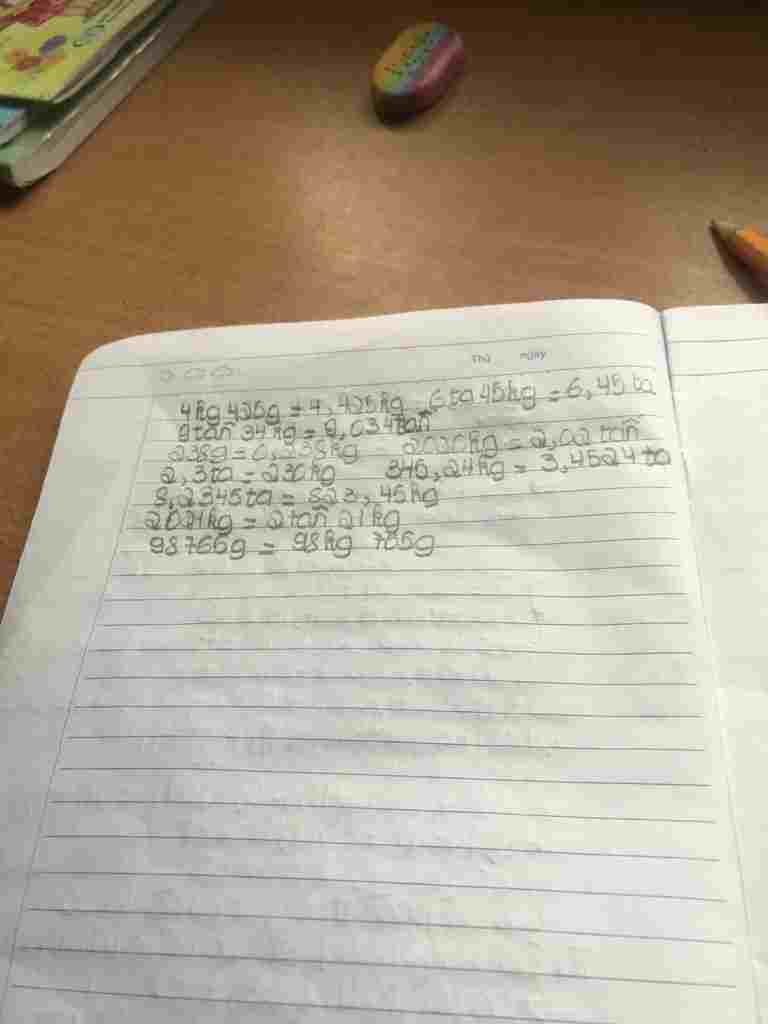 Thứ ngày
4kg 425g = 4,425kg 6 ta 45kg = 6,45 ta
9 tấn 34kg = 9,034 tấn
238g = 0,238kg 2020kg = 2,02 tấn
2,3 ta = 230kg 345,24kg = 3,4524 ta
8,2345 ta = 823,45kg
2021kg = 2 tấn 21kg
98765g = 98kg 765g